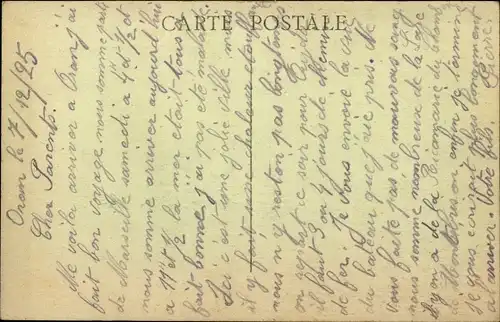 CARTE POSTALE
Oran le 7/12/25
Cher Parents.
Me voila arriver a Oran j'ai
fait bon voyage nous somme parti
de Marseille samedi a 4 et 1/2 et
nous somme arriver aujourd'hui
a 11 et 1/2 la mer était tous
fait bonne j'ai pas été malade.
Ici c'est une jolie ville mais
il y fait une chaleur etouffante
nous n'y reston pas longtemps
on repart ce soir pour
il faut 3 ou 4 jours de chemin
de fer. Je vous envoie la vue
du bateau que j'ai pris. Ne
vous faite pas de mauvais sang
nous somme nombreux de la
il y en a de la
de ou enfin je termine
je vous ecrirait plus longement
a Votre fils Pierre